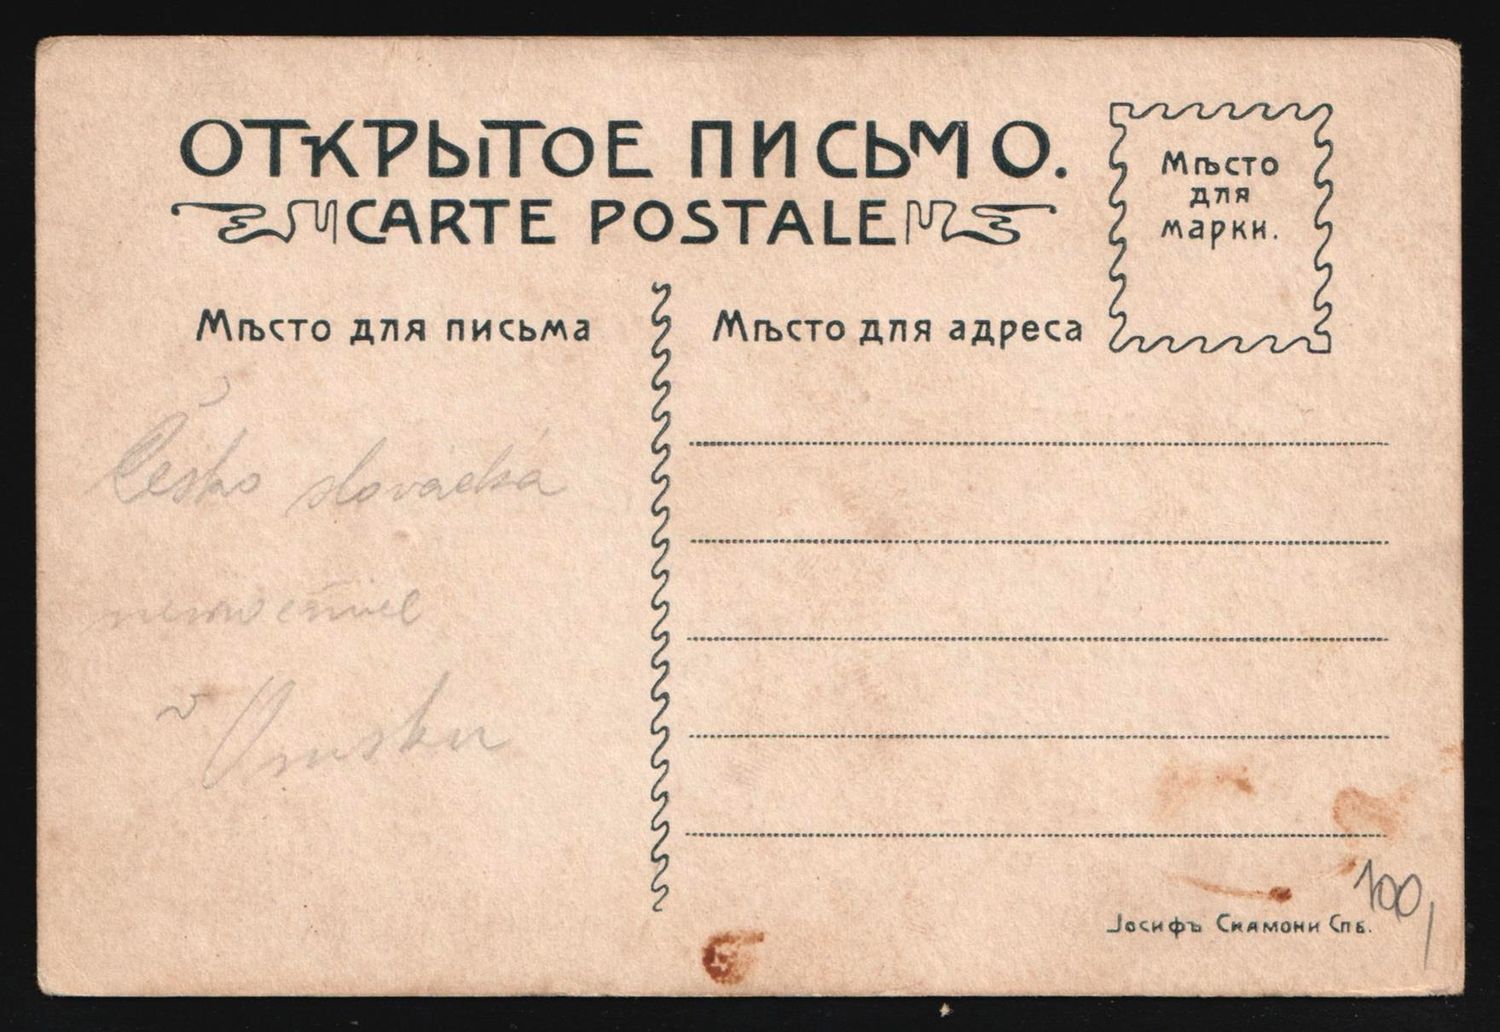 ОТКРЫТОЕ ПИСЬМО.
CARTE POSTALE
Мѣсто
для
марки.
Мѣсто для письма
Мѣсто для адреса
Česko slovácká
v Omsku
100,
Іосифъ Скамони Спб.